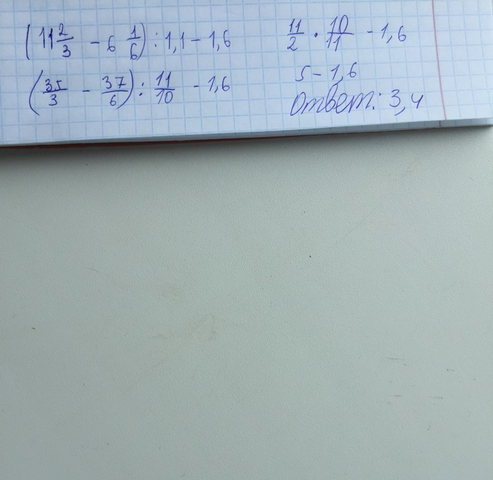 (11 2/3 - 6 1/6) : 1,1 - 1,6
(35/3 - 37/6) : 11/10 - 1,6
11/2 · 10/11 - 1,6
5 - 1,6
Ответ: 3,4